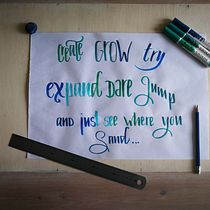 create GROW try
expand DARE Jump
and just see where you
Land...